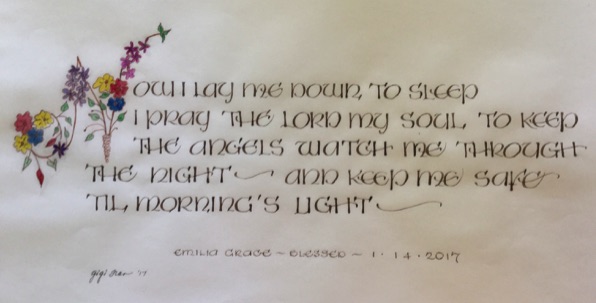 NOW I LAY ME DOWN, TO SLEEP
I PRAY THE LORD MY SOUL, TO KEEP
THE ANGELS WATCH ME THROUGH
THE NIGHT ~ AND KEEP ME SAFE
'TIL MORNING'S LIGHT ~
EMILIA GRACE ~ BLESSED ~ 1 · 14 · 2017
gigi '17